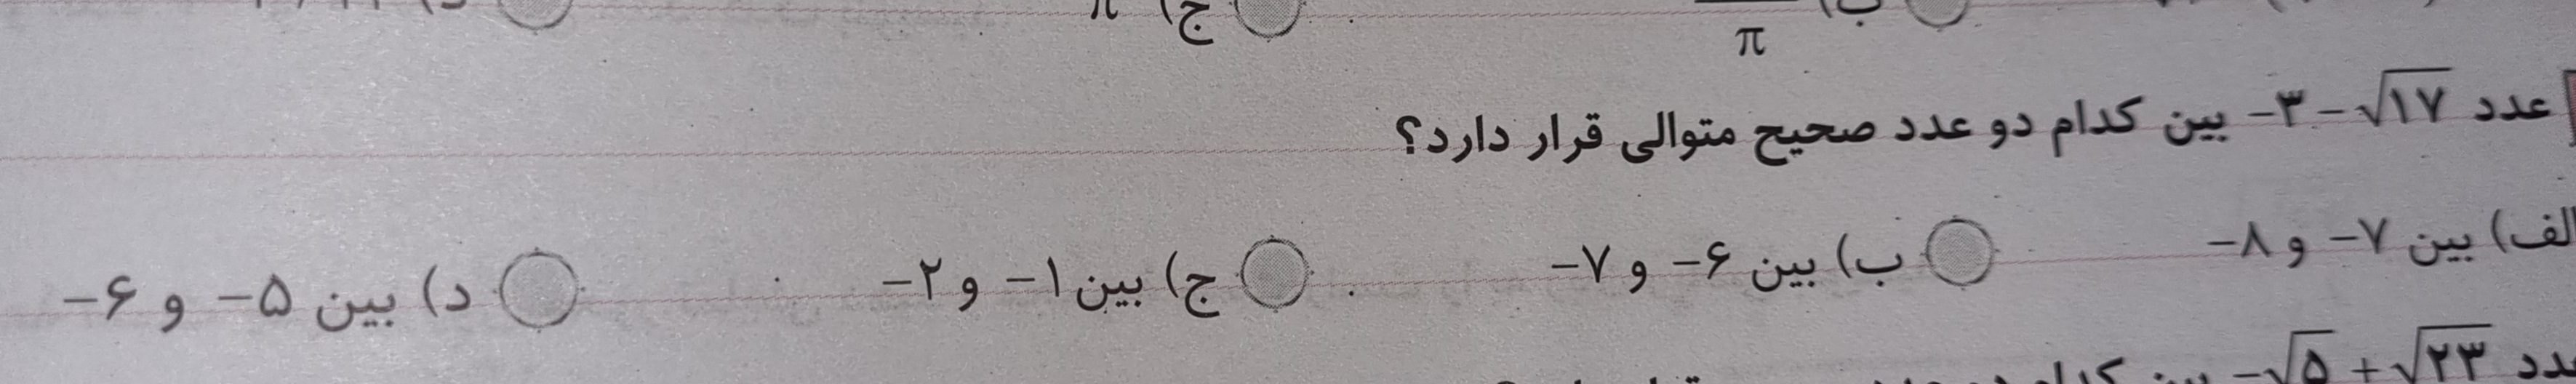 ب) π ج)
عدد -۳-√۱۷ بین کدام دو عدد صحیح متوالی قرار دارد؟
الف) بین -۷ و -۸ ب) بین -۶ و -۷ ج) بین -۱ و -۲ د) بین -۵ و -۶
-√۵+√۲۳ بین کدام